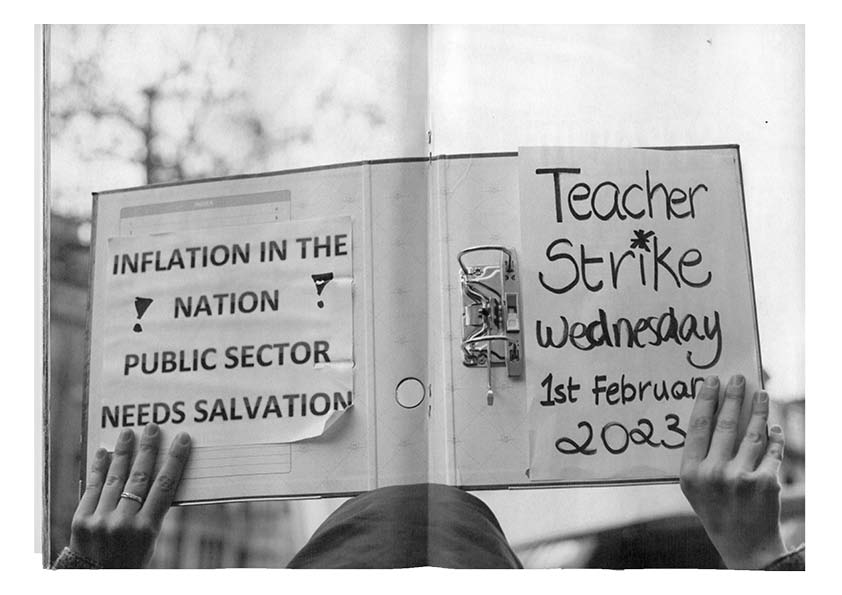 INDEX
INFLATION IN THE
NATION
PUBLIC SECTOR
NEEDS SALVATION
Teacher
Strike
Wednesday
1st Februar
2023